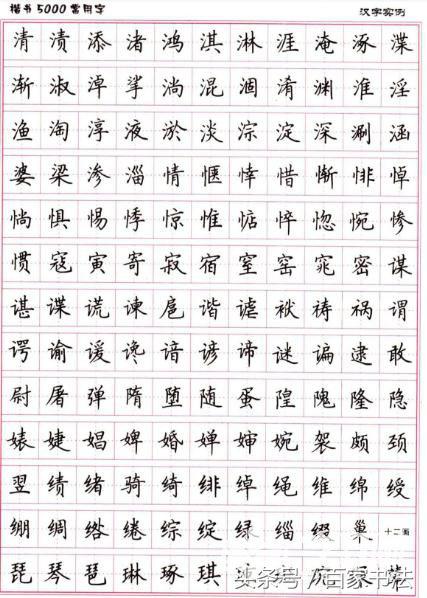 楷书5000常用字 汉字实例
清 渍 添 渚 鸿 淇 淋 涯 淹 涿 渫
渐 淑 淖 挲 淌 混 涸 淆 渊 淮 淫
渔 淘 淳 液 淤 淡 淙 淀 深 涮 涵
婆 梁 渗 淄 情 惬 悻 惜 惭 悱 悼
惝 惧 惕 悸 惊 惟 惦 悴 惚 惋 惨
惯 寇 寅 寄 寂 宿 窒 窑 窕 密 谋
谌 谍 谎 谏 扈 谐 谑 袱 祷 祸 谓
谔 谕 谖 谗 谙 谚 谛 谜 谝 逮 敢
尉 屠 弹 隋 堕 随 蛋 隍 隗 隆 隐
婊 婕 娼 婢 婚 婵 婶 婉 袈 颇 颈
翌 绩 绪 骑 绮 绯 绰 绳 维 绵 绶
绷 绸 绺 绻 综 绽 绿 缁 缀 巢 十二画
琵 琴 琶 琳 琢 琪
头条号/百家书法